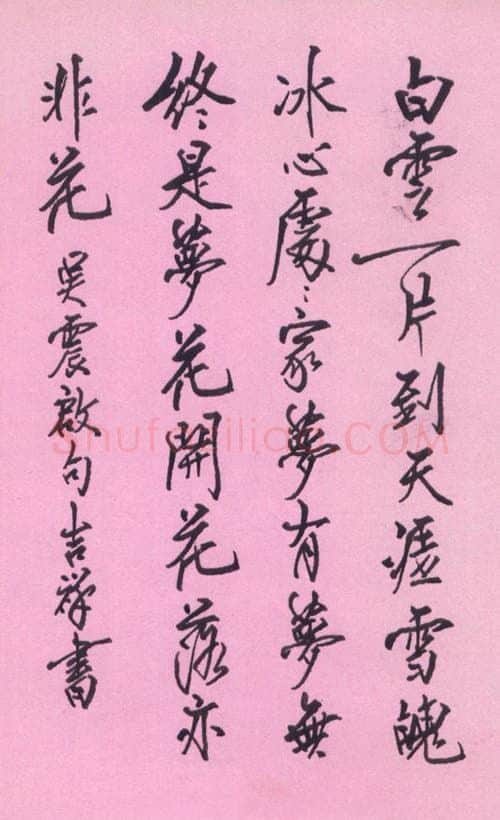 白雲一片到天涯雪魄
冰心處〻家夢有夢無
終是夢花開花落亦
非花 吳震啟句吉祥書
Shufaziliao.COM